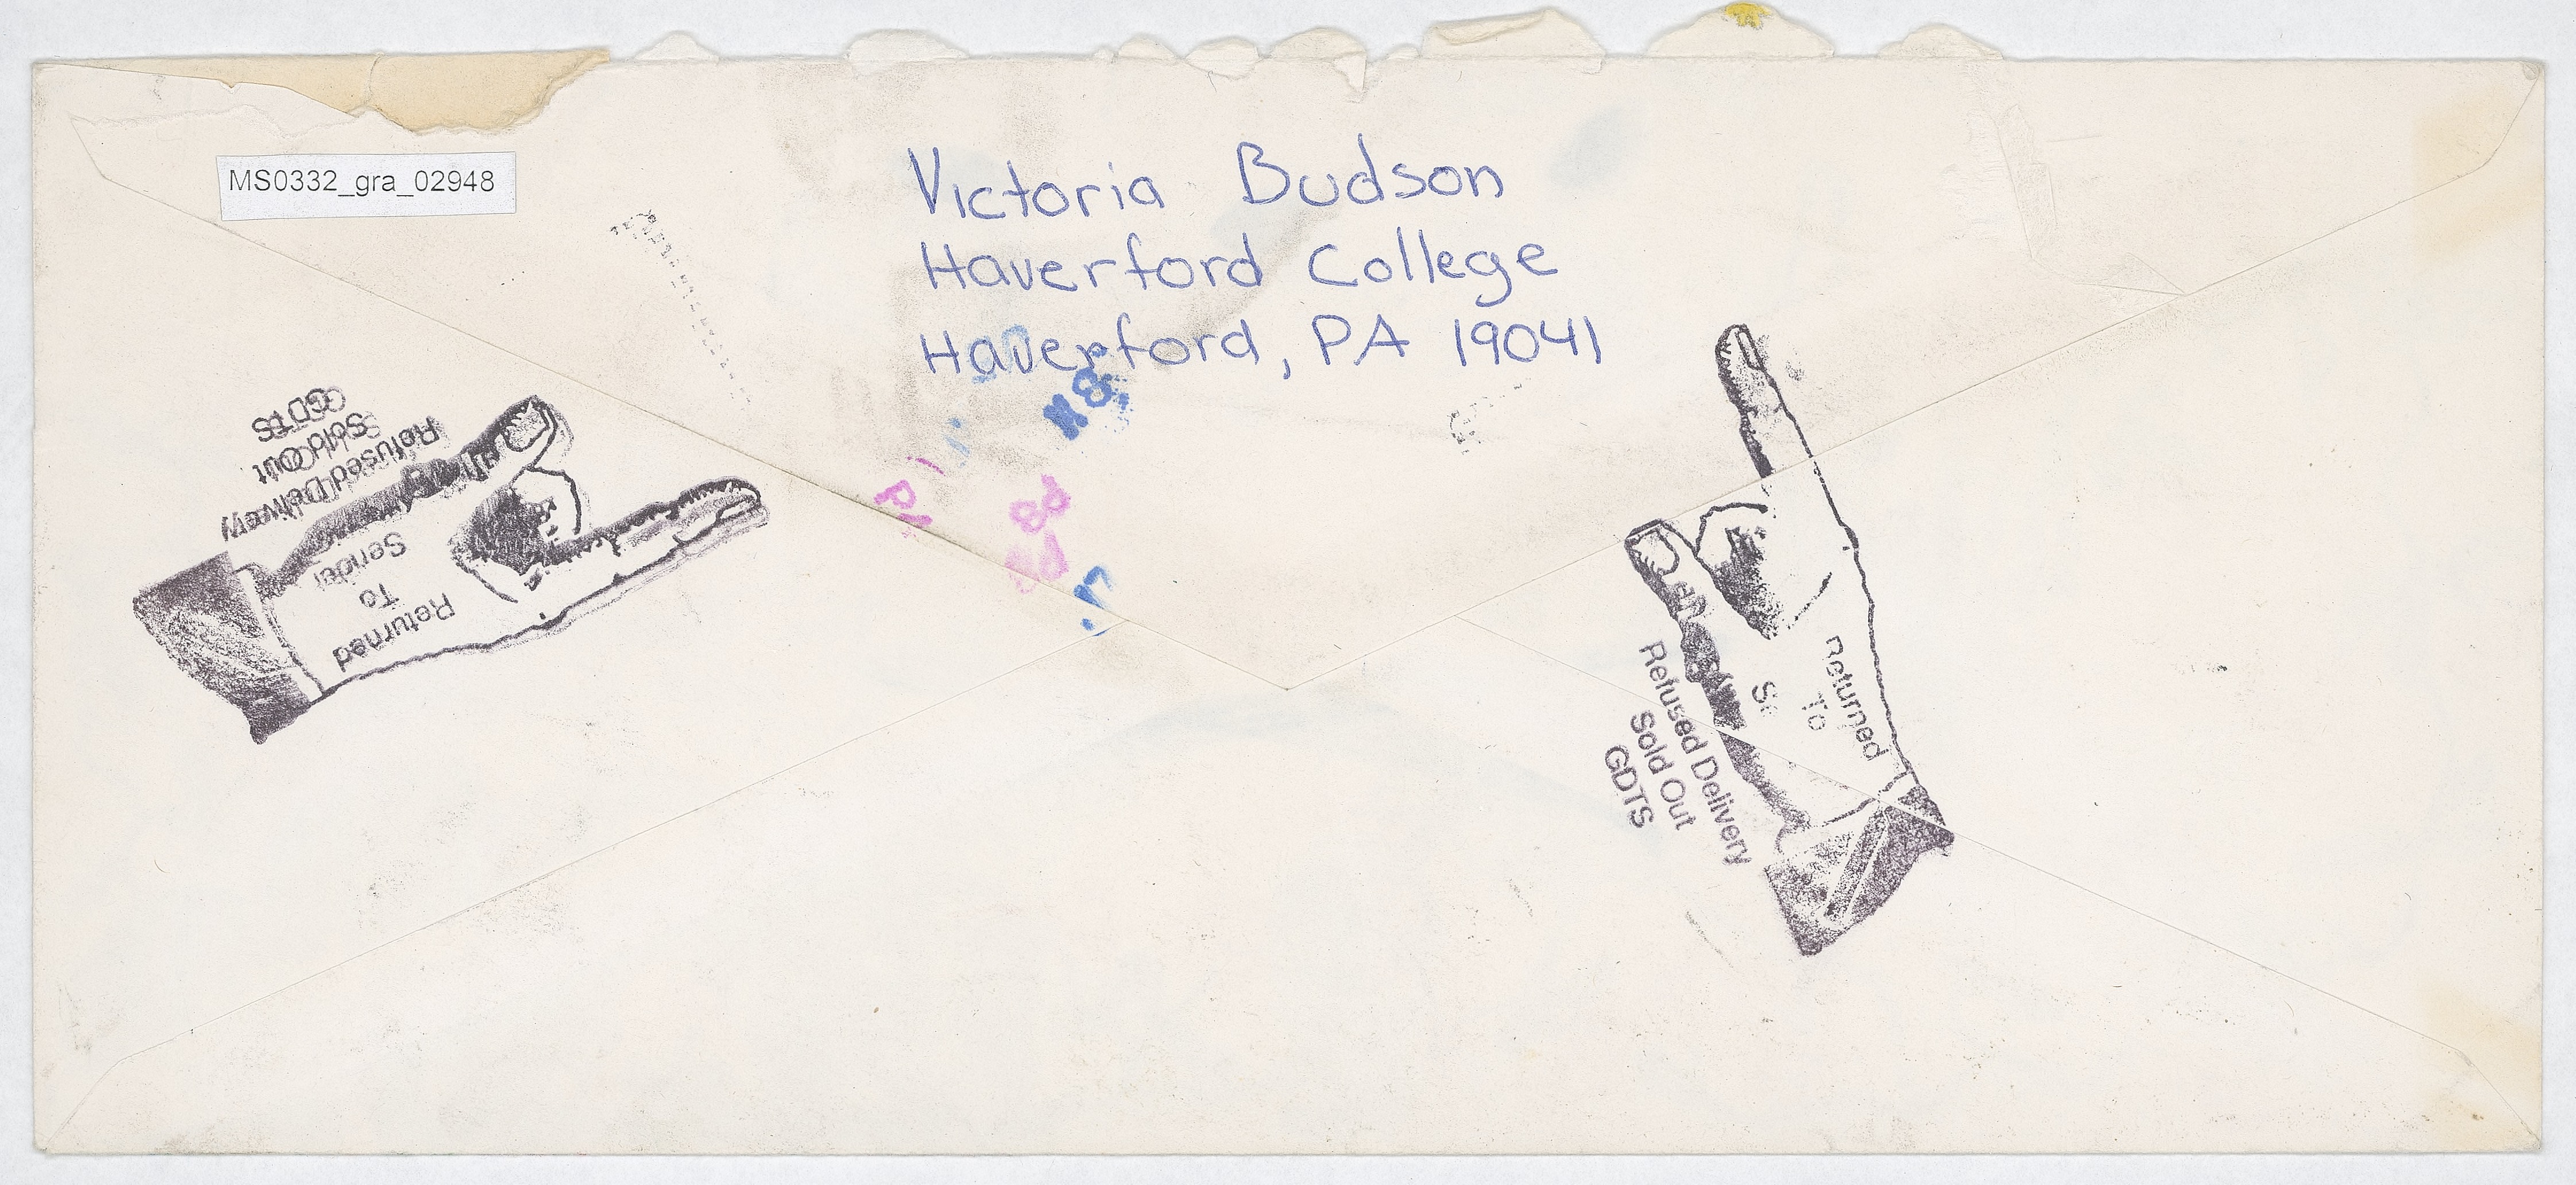 MS0332_gra_02948
Victoria Budson
Haverford College
Haverford, PA 19041
Returned
To
Sender
Refused Delivery
Sold Out
GDTS
Returned
To
Refused Delivery
Sold Out
GDTS